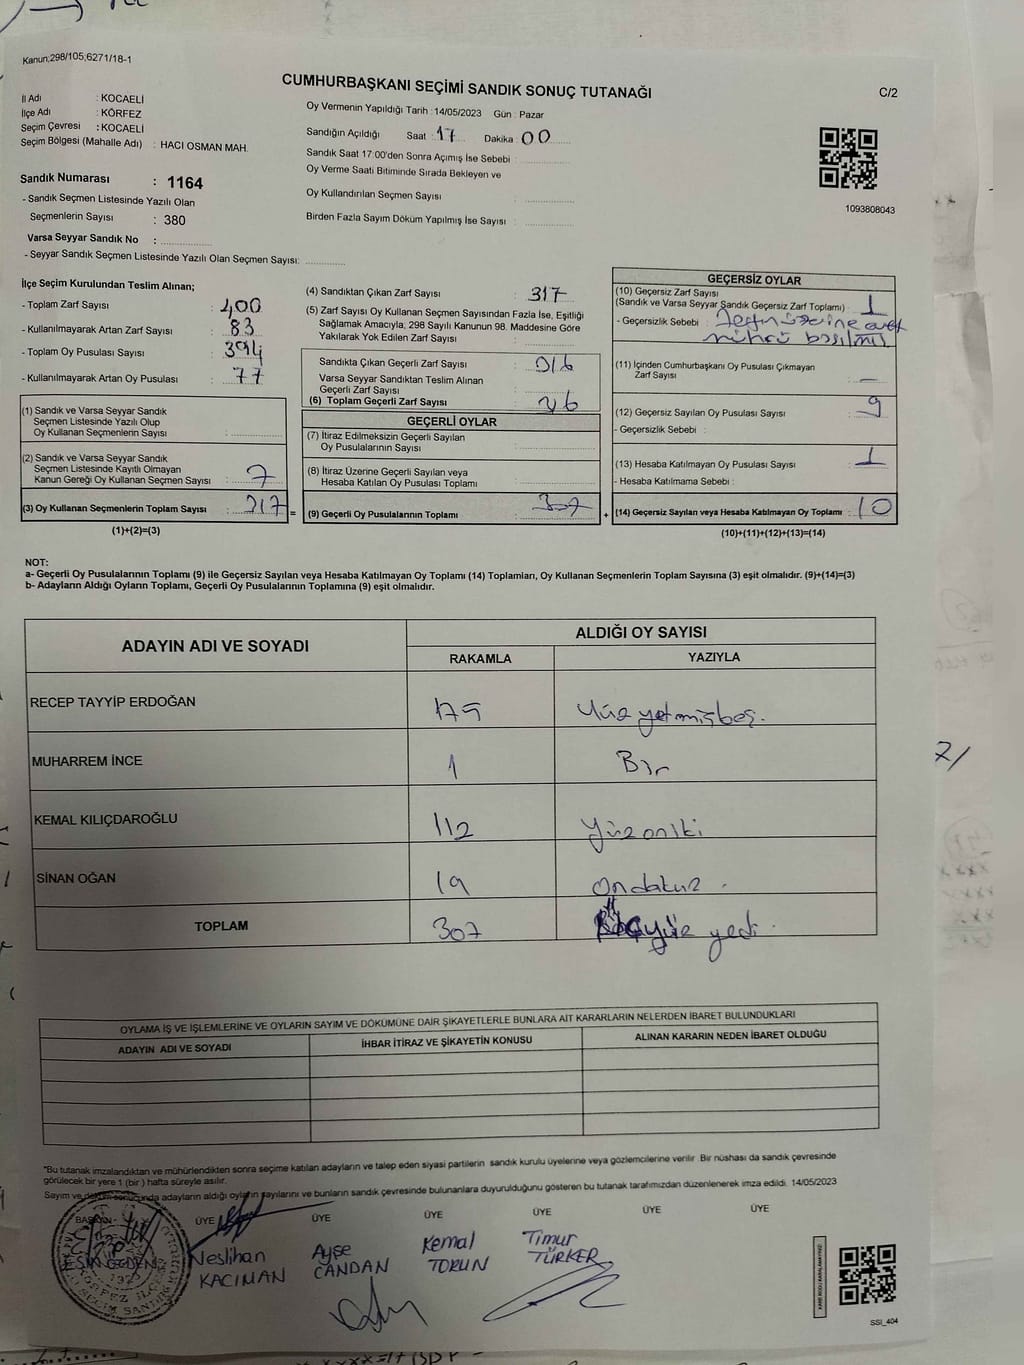 Kanun;298/105;6271/18-1
CUMHURBAŞKANI SEÇİMİ SANDIK SONUÇ TUTANAĞI
C/2
İl Adı : KOCAELİ
İlçe Adı : KÖRFEZ
Seçim Çevresi : KOCAELİ
Seçim Bölgesi (Mahalle Adı) : HACI OSMAN MAH.
Oy Vermenin Yapıldığı Tarih : 14/05/2023 Gün : Pazar
Sandığın Açıldığı Saat : 17 Dakika : 00
Sandık Saat 17:00'den Sonra Açımış İse Sebebi :
Oy Verme Saati Bitiminde Sırada Bekleyen ve
Oy Kullandırılan Seçmen Sayısı :
Birden Fazla Sayım Döküm Yapılmış İse Sayısı :
1093808043
Sandık Numarası : 1164
- Sandık Seçmen Listesinde Yazılı Olan
Seçmenlerin Sayısı : 380
Varsa Seyyar Sandık No :
- Seyyar Sandık Seçmen Listesinde Yazılı Olan Seçmen Sayısı:
İlçe Seçim Kurulundan Teslim Alınan;
- Toplam Zarf Sayısı : 400
- Kullanılmayarak Artan Zarf Sayısı : 83
- Toplam Oy Pusulası Sayısı : 394
- Kullanılmayarak Artan Oy Pusulası : 77
(1) Sandık ve Varsa Seyyar Sandık
Seçmen Listesinde Yazılı Olup
Oy Kullanan Seçmenlerin Sayısı :
(2) Sandık ve Varsa Seyyar Sandık
Seçmen Listesinde Kayıtlı Olmayan
Kanun Gereği Oy Kullanan Seçmen Sayısı : 7
(3) Oy Kullanan Seçmenlerin Toplam Sayısı : 317 =
(1)+(2)=(3)
(4) Sandıktan Çıkan Zarf Sayısı : 317
(5) Zarf Sayısı Oy Kullanan Seçmen Sayısından Fazla İse, Eşitliği
Sağlamak Amacıyla, 298 Sayılı Kanunun 98. Maddesine Göre
Yakılarak Yok Edilen Zarf Sayısı :
Sandıkta Çıkan Geçerli Zarf Sayısı : 316
Varsa Seyyar Sandıktan Teslim Alınan
Geçerli Zarf Sayısı :
(6) Toplam Geçerli Zarf Sayısı :
GEÇERLİ OYLAR
(7) İtiraz Edilmeksizin Geçerli Sayılan
Oy Pusulalarının Sayısı :
(8) İtiraz Üzerine Geçerli Sayılan veya
Hesaba Katılan Oy Pusulası Toplamı :
(9) Geçerli Oy Pusulalarının Toplamı : 307 +
GEÇERSİZ OYLAR
(10) Geçersiz Zarf Sayısı
(Sandık ve Varsa Seyyar Sandık Geçersiz Zarf Toplamı) : 1
- Geçersizlik Sebebi : üzerine evet
mührü basılmış
(11) İçinden Cumhurbaşkanı Oy Pusulası Çıkmayan
Zarf Sayısı : -
(12) Geçersiz Sayılan Oy Pusulası Sayısı : 9
- Geçersizlik Sebebi :
(13) Hesaba Katılmayan Oy Pusulası Sayısı : 1
- Hesaba Katılmama Sebebi :
(14) Geçersiz Sayılan veya Hesaba Katılmayan Oy Toplamı : 10
(10)+(11)+(12)+(13)=(14)
NOT:
a- Geçerli Oy Pusulalarının Toplamı (9) ile Geçersiz Sayılan veya Hesaba Katılmayan Oy Toplamı (14) Toplamları, Oy Kullanan Seçmenlerin Toplam Sayısına (3) eşit olmalıdır. (9)+(14)=(3)
b- Adayların Aldığı Oyların Toplamı, Geçerli Oy Pusulalarının Toplamına (9) eşit olmalıdır.
ADAYIN ADI VE SOYADI ALDIĞI OY SAYISI
RAKAMLA YAZIYLA
RECEP TAYYİP ERDOĞAN 175 Yüz yetmişbeş.
MUHARREM İNCE 1 Bir
KEMAL KILIÇDAROĞLU 112 Yüz oniki
SİNAN OĞAN 19 Ondokuz.
TOPLAM 307 Üçyüz yedi.
OYLAMA İŞ VE İŞLEMLERİNE VE OYLARIN SAYIM VE DÖKÜMÜNE DAİR ŞİKAYETLERLE BUNLARA AİT KARARLARIN NELERDEN İBARET BULUNDUKLARI
ADAYIN ADI VE SOYADI İHBAR İTİRAZ VE ŞİKAYETİN KONUSU ALINAN KARARIN NEDEN İBARET OLDUĞU
*Bu tutanak imzalandıktan ve mühürlendikten sonra seçime katılan adayların ve talep eden siyasi partilerin sandık kurulu üyelerine veya gözlemcilerine verilir. Bir nüshası da sandık çevresinde
görülecek bir yere 1 (bir) hafta süreyle asılır.
Sayım ve döküm sonucunda adayların aldığı oyların sayılarını ve bunların sandık çevresinde bulunanlara duyurulduğunu gösteren bu tutanak tarafımızdan düzenlenerek imza edildi. 14/05/2023
BAŞKAN ÜYE ÜYE ÜYE ÜYE ÜYE ÜYE
Neslihan Ayşe Kemal Timur
KACIMAN CANDAN TORUN TÜRKER
SSI_404